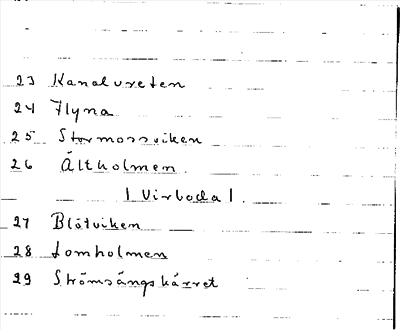 23 Kanalvreten
24 Flyna
25 Stormossviken
26 Ältholmen
| Virboda |
27 Blötviken
28 Lomholmen
29 Strömsängskärret